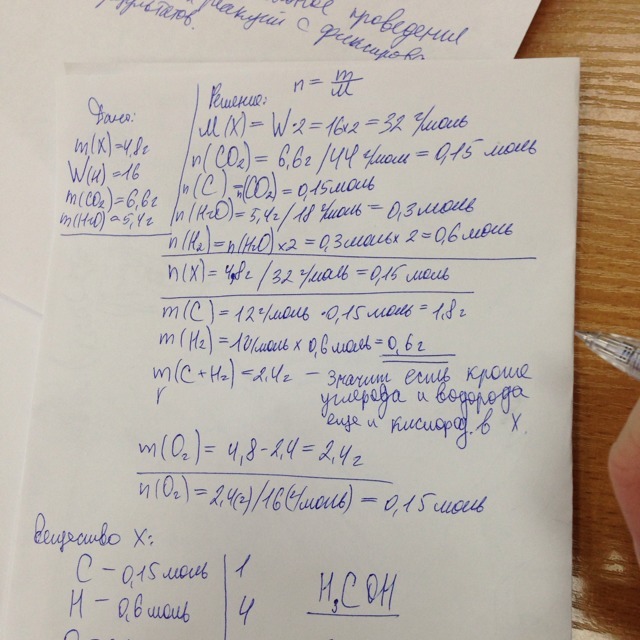 проведения
результатов. реакции с
n = m/M
Дано:
m(X)=4,8г
W(H)=16
m(CO₂)=6,6г
m(H₂O)=5,4г
Решение:
M(X) = W·2 = 16x2 = 32 г/моль
n(CO₂) = 6,6г/44 г/моль = 0,15 моль
n(C) = n(CO₂) = 0,15моль
n(H₂O) = 5,4г/18 г/моль = 0,3моль
n(H₂) = n(H₂O) x2 = 0,3мольx2 = 0,6моль
n(X) = 4,8г/32 г/моль = 0,15 моль
m(C) = 12г/моль · 0,15 моль = 1,8г
m(H₂) = 1г/моль x 0,6моль = 0,6г
m(C+H₂) = 2,4г – значит есть кроме
углерода и водорода
еще и кислород. в X.
m(O₂) = 4,8-2,4 = 2,4г
n(O₂) = 2,4(г)/16(г/моль) = 0,15моль
Вещество X:
C – 0,15моль | 1
H – 0,6моль | 4
H₃COH